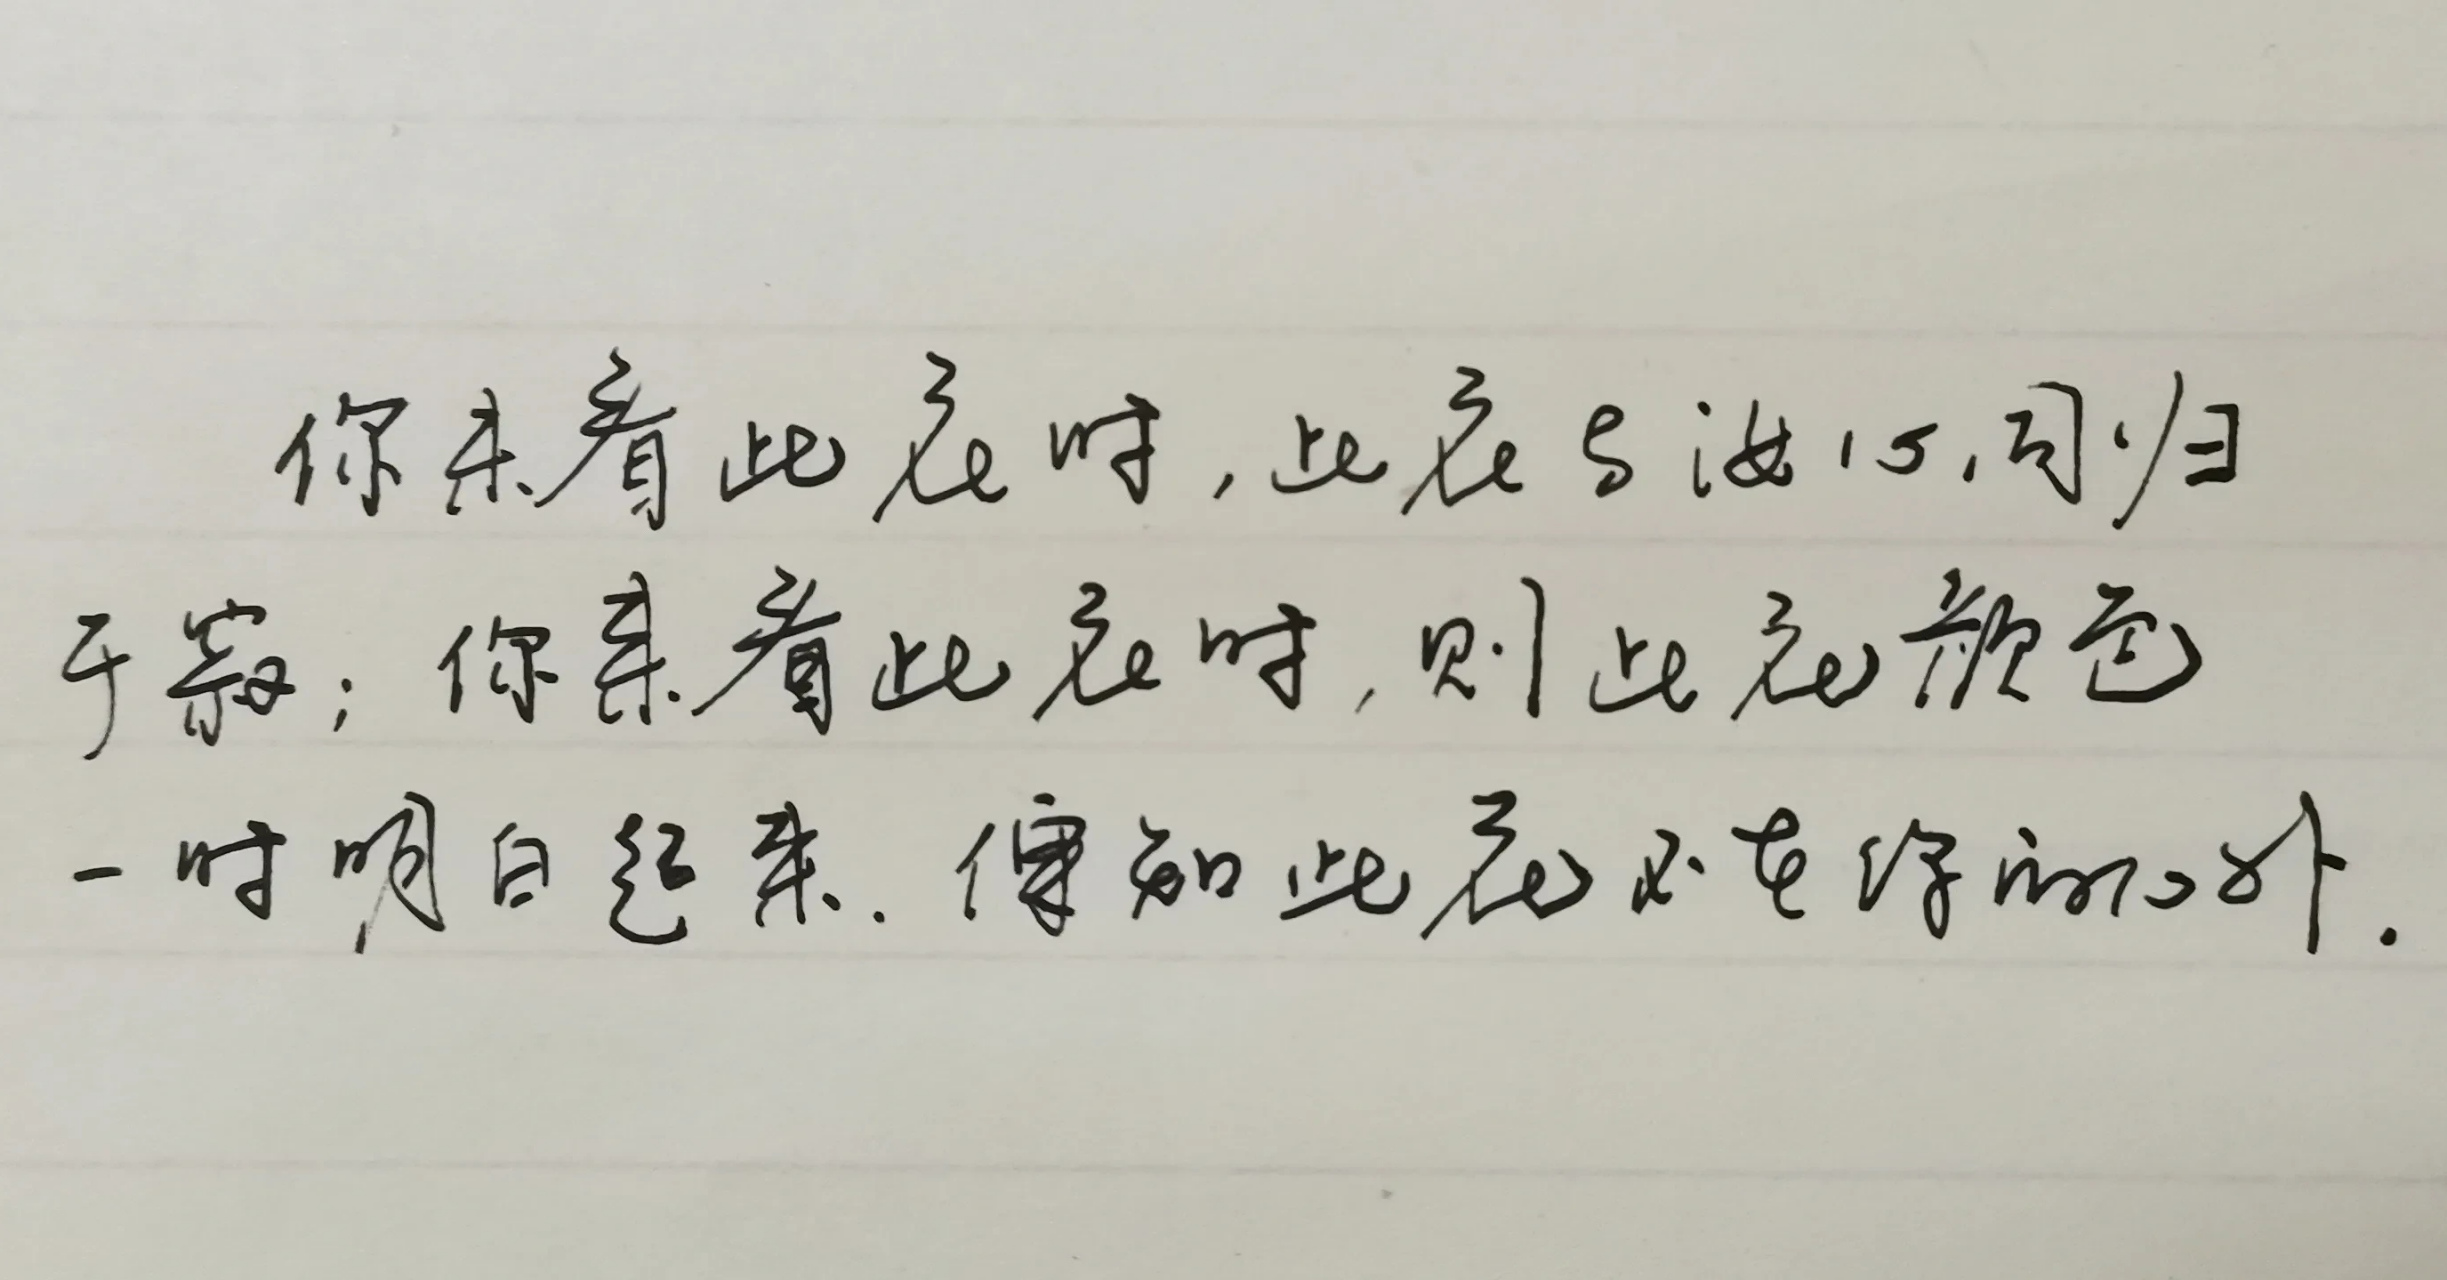 你未看此花时,此花与汝心同归
于寂;你来看此花时,则此花颜色
一时明白起来.便知此花不在你的心外.